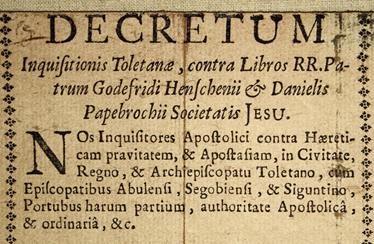 DECRETUM
Inquiſitionis Toletanæ, contra Libros RR. Pa-
trum Godefridi Henſchenii & Danielis
Papebrochii Societatis JESU.
NOs Inquiſitores Apoſtolici contra Hæreti-
cam pravitatem, & Apoſtaſiam, in Civitate,
Regno, & Archiepiſcopatu Toletano, cùm
Epiſcopatibus Abulenſi, Segobienſi, & Siguntino,
Portubus harum partium, authoritate Apoſtolicâ,
& ordinariâ, &c.